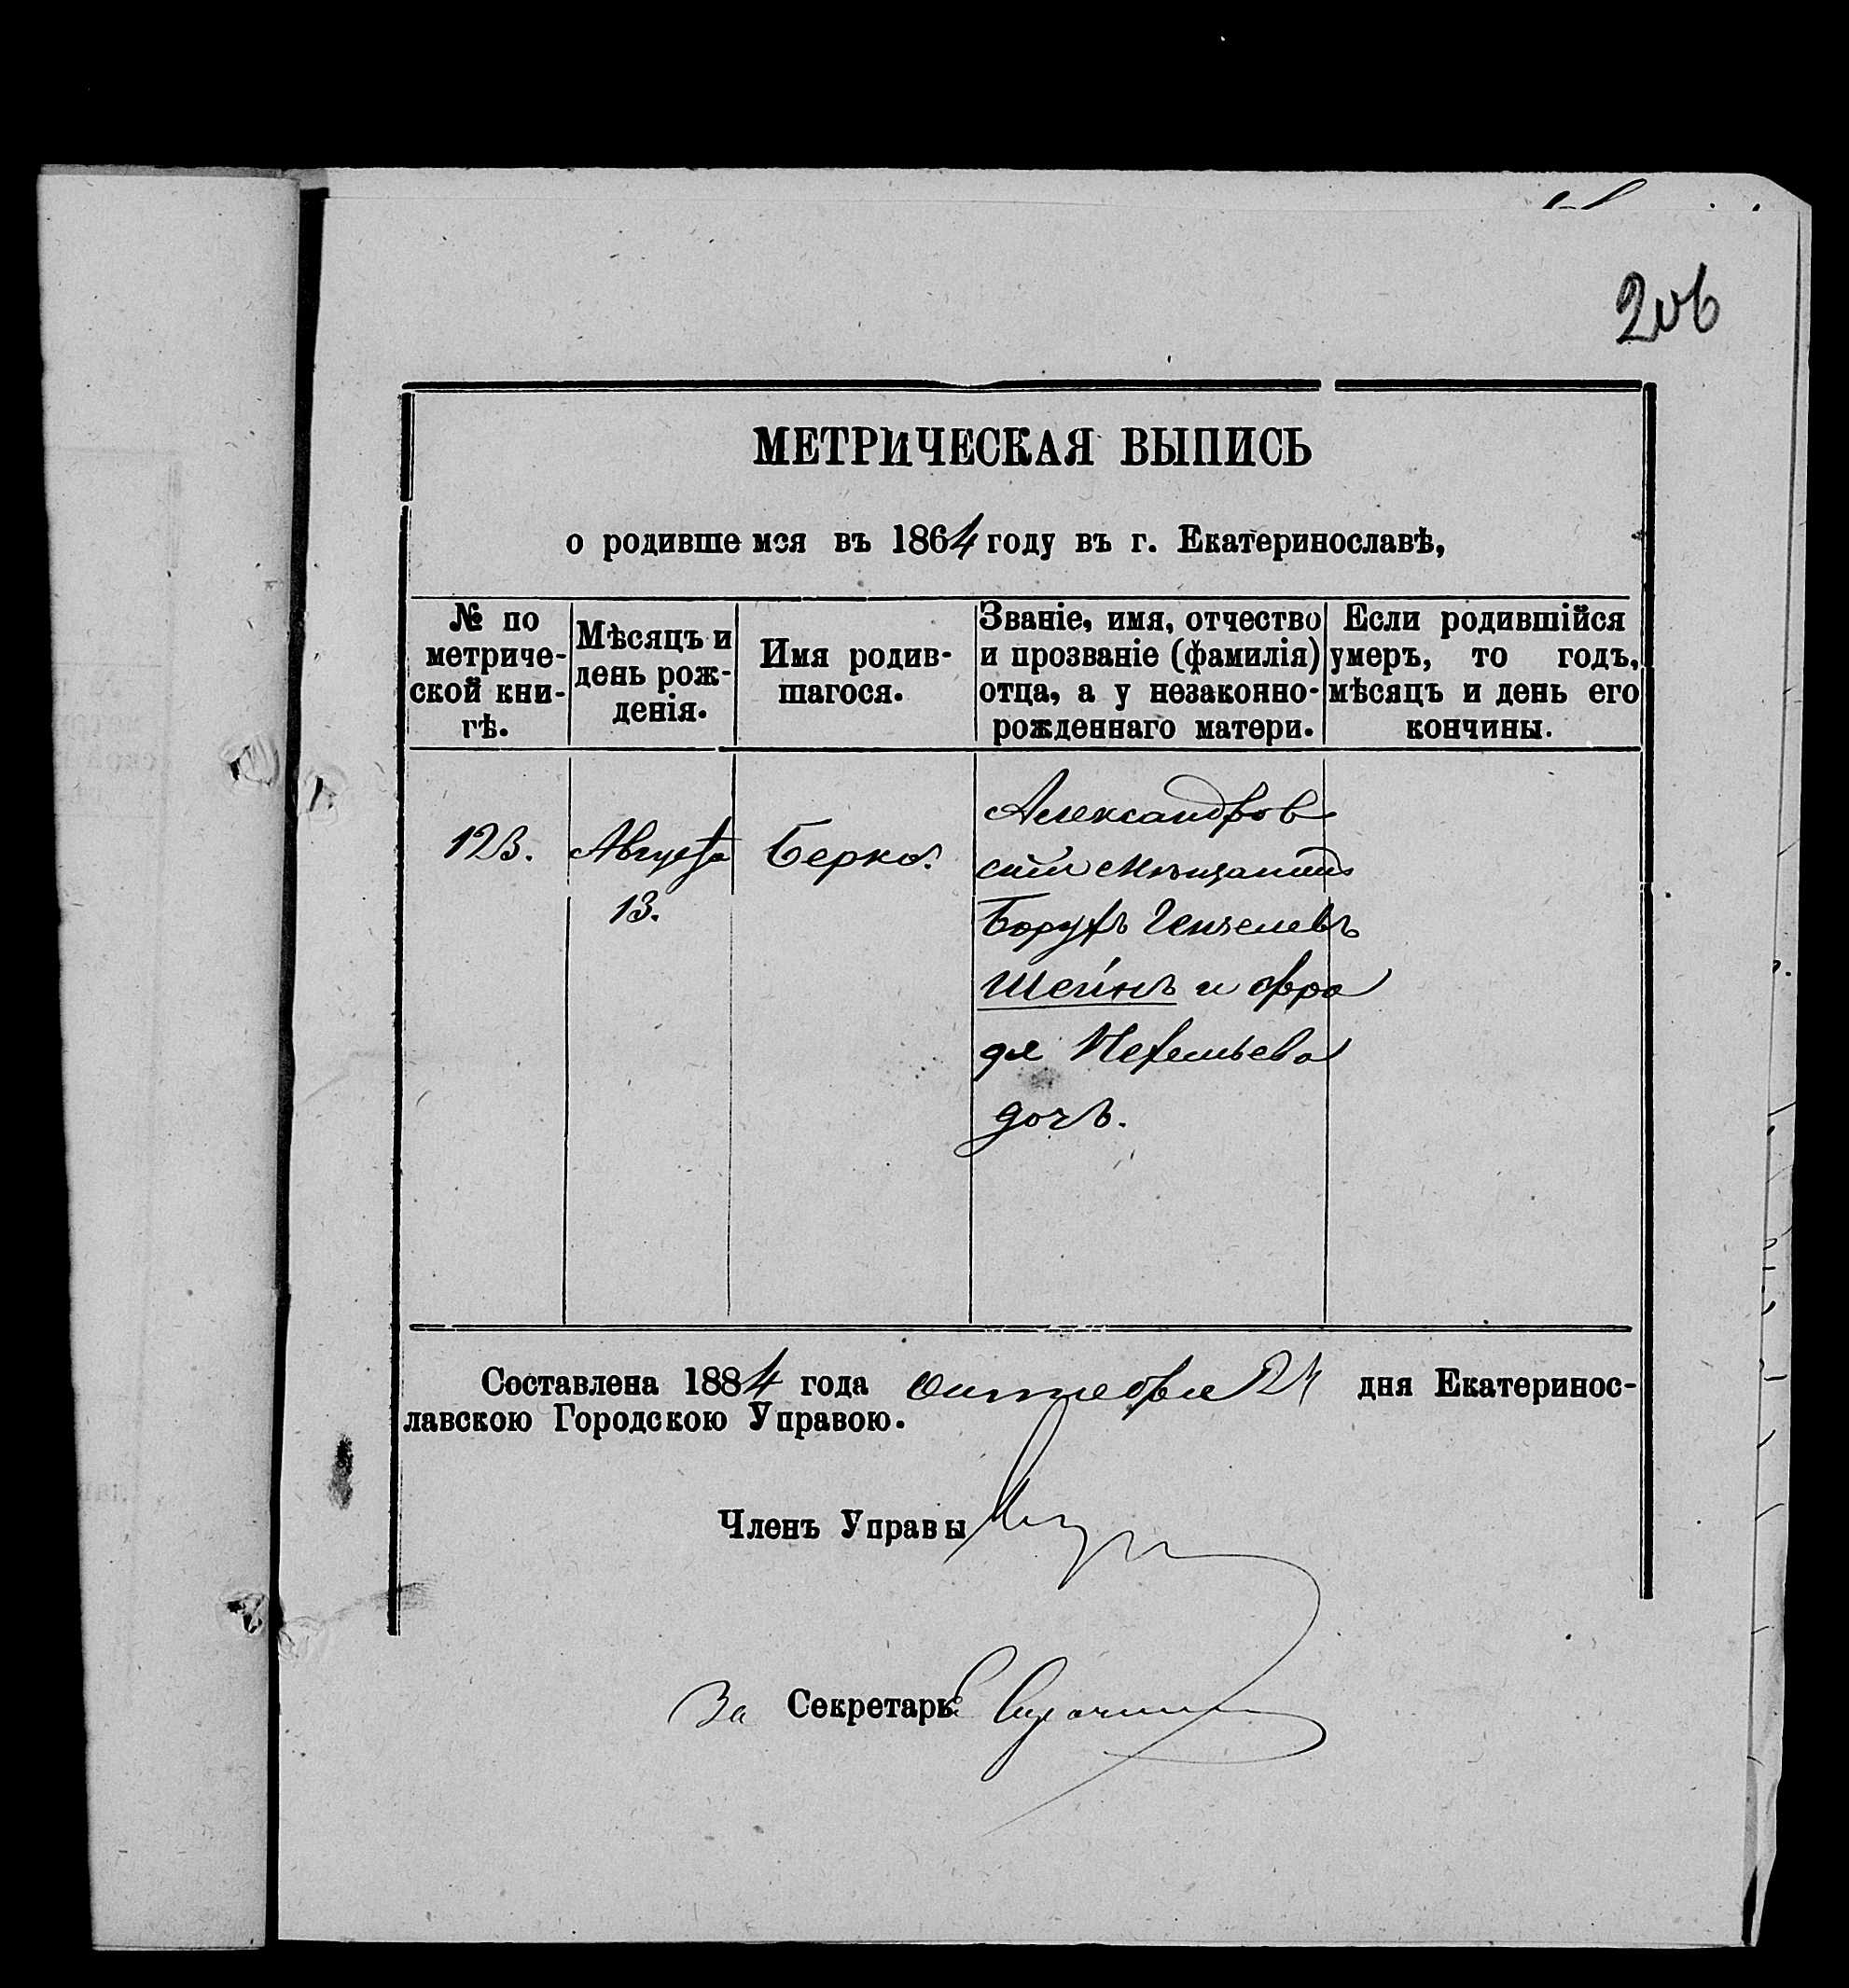 206
МЕТРИЧЕСКАЯ ВЫПИСЬ
о родившемся въ 1864 году въ г. Екатеринославѣ,
№ по метриче-ской кни-гѣ.
Мѣсяцъ и день рож-денія.
Имя родив-шагося.
Званіе, имя, отчество и прозваніе (фамилія) отца, а у незаконно-рожденнаго матери.
Если родившійся умеръ, то годъ, мѣсяцъ и день его кончины.
123.
Августа
13.
Берко.
Александров
скій Мѣщанинъ
Борухъ
Шейнъ и Фра
дя
дочь.
Составлена 1884 года октября 24 дня Екатеринос-
лавскою Городскою Управою.
Членъ Управы
За Секретарь